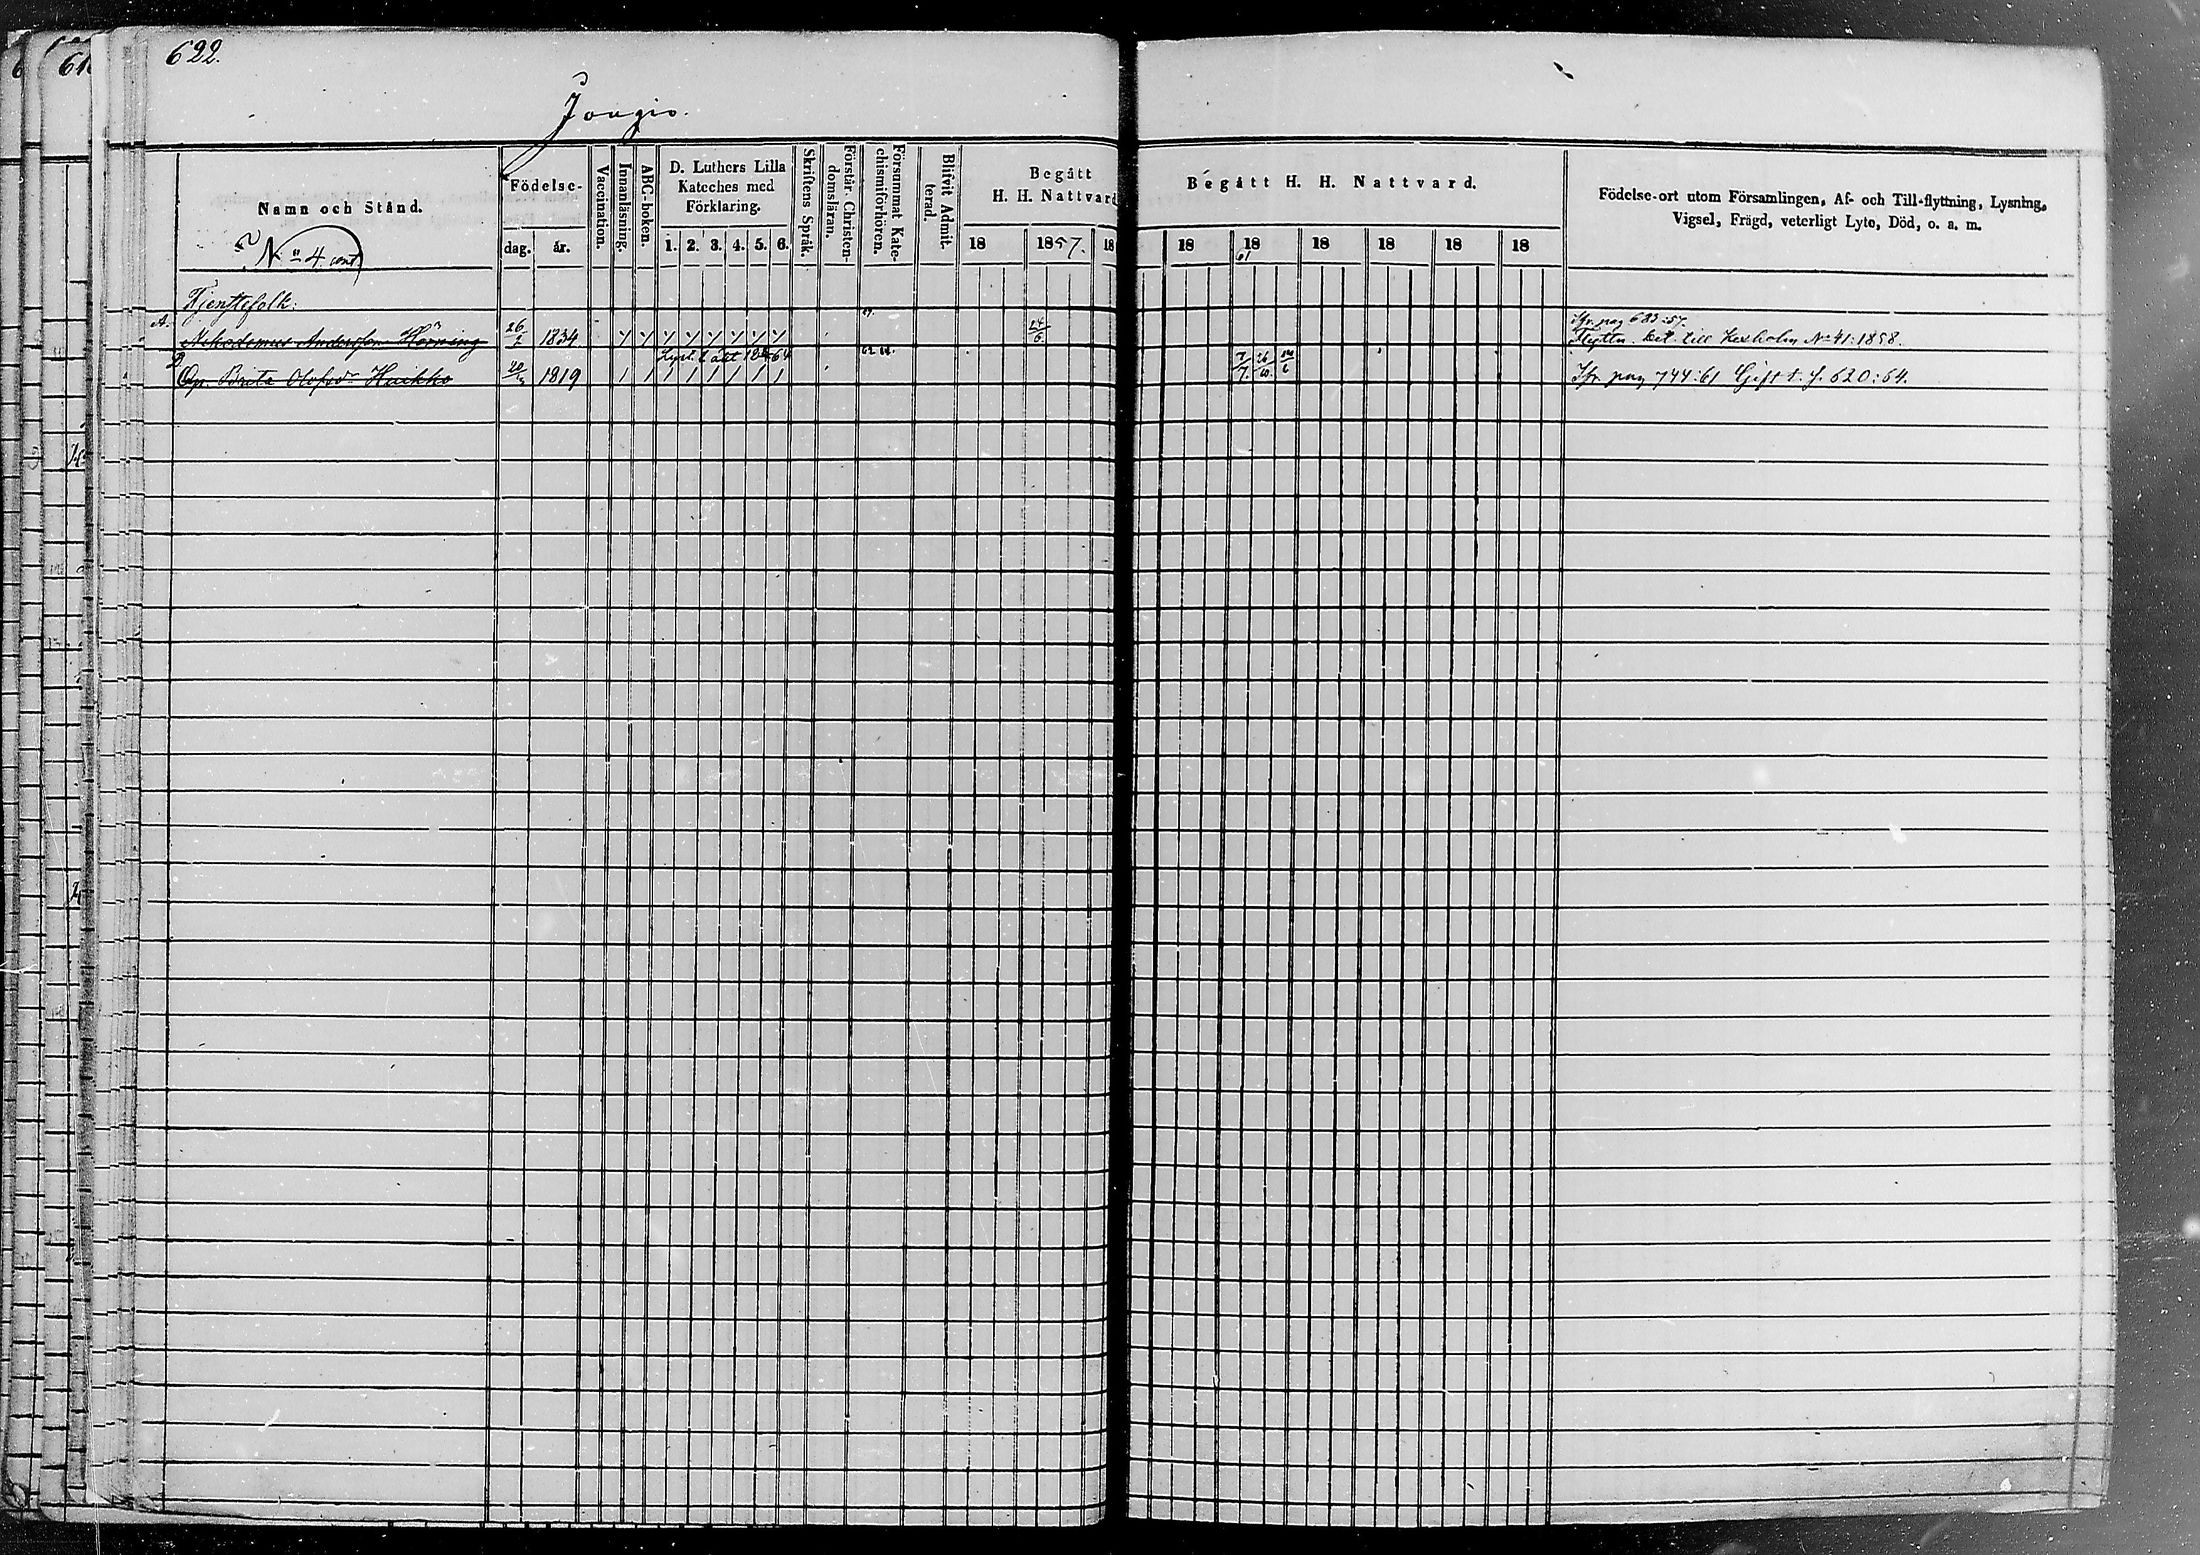 622.
61
Jougio.
Namn och Stånd.
Födelse-
dag. år.
Vaccination.
Innanläsning.
ABC-boken.
D. Luthers Lilla
Kateches med
Förklaring.
1. 2. 3. 4. 5. 6.
Skriftens Språk.
Förstår Christen-
domsläran.
Försummat Kate-
chismiförhören.
Blifvit Admit-
terad.
Begått
H. H. Nattvard
18 1857. 18
Begått H. H. Nattvard.
18 18 61 18 18 18 18
Födelse-ort utom Församlingen, Af- och Till-flyttning, Lysning,
Vigsel, Frägd, veterligt Lyte, Död, o. a. m.
No 4 cont
Tjenstefolk:
A. Nikodemus Andersson Hörning 26/2 1834 24/6
Ifr. pag 683:57.
Flyttn. bet. till Kexholm No 41:1858.
Lyst. t. äkt 18 64
Brita Olofsdr Huikko 1819 7/7. 26/10 6
Ifr. pag 744:61 Gift t. f. 620:64.